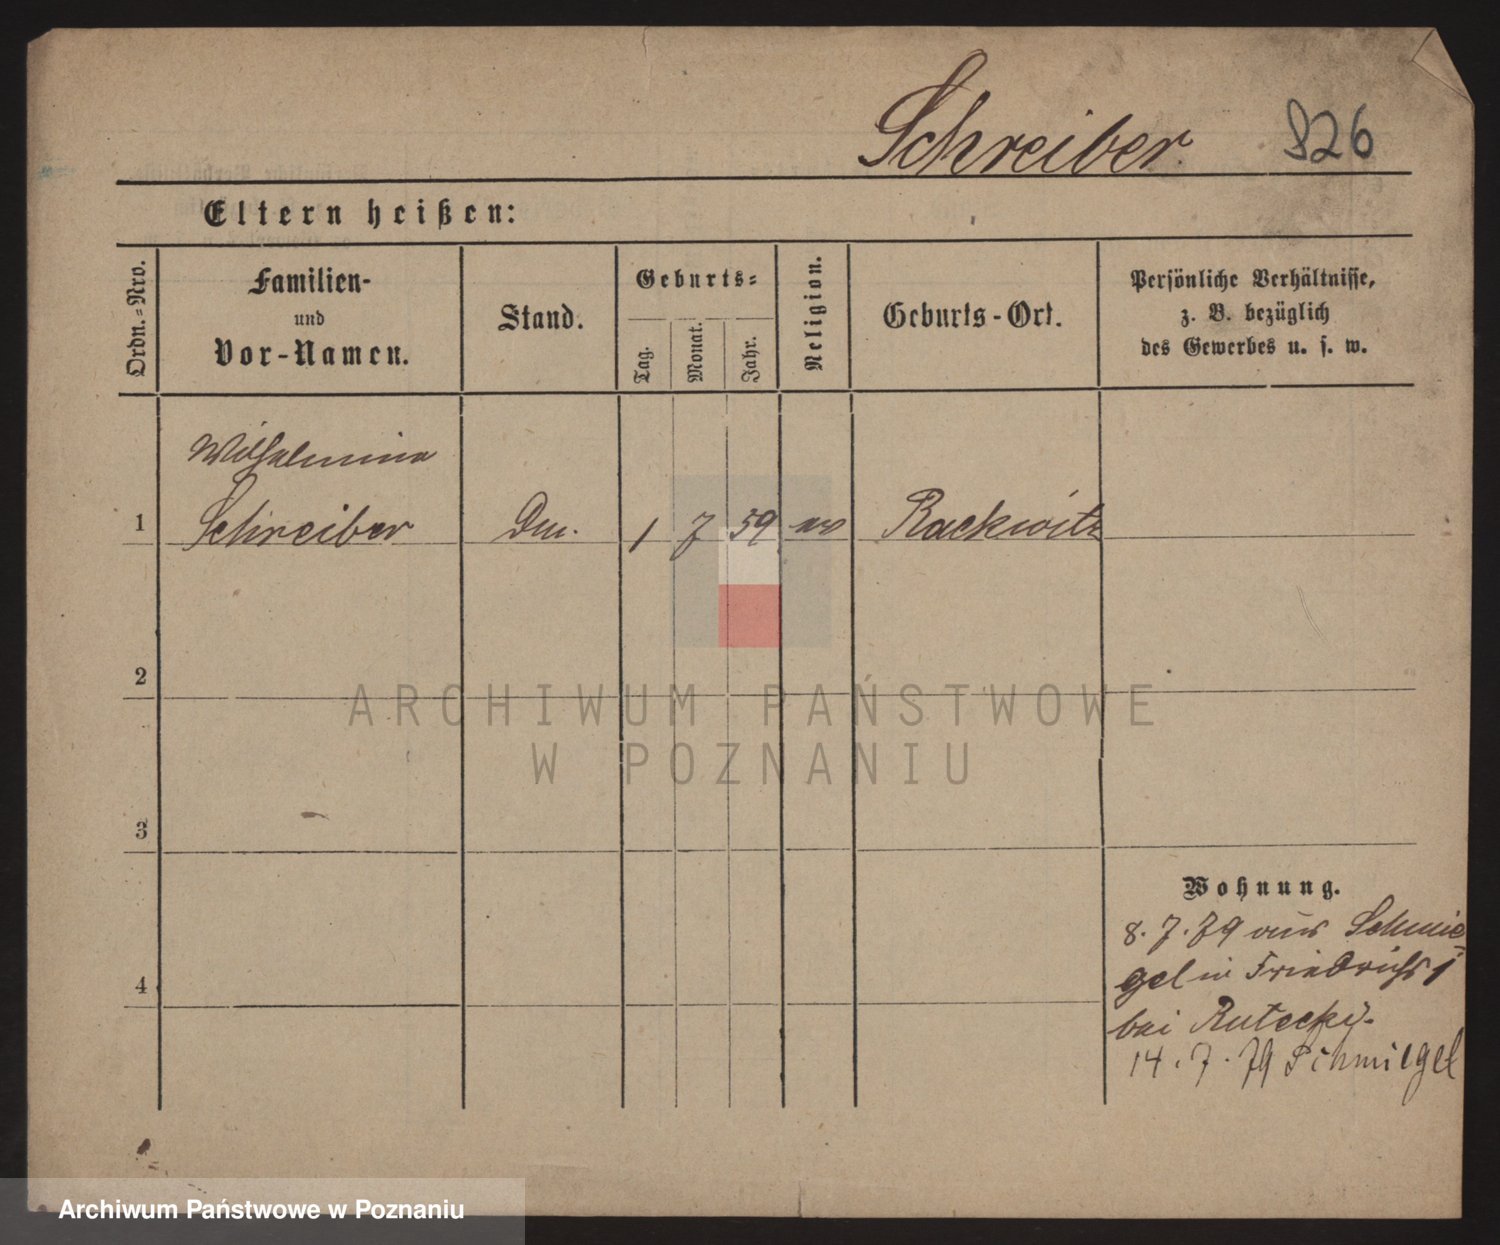 Schreiber 826
Eltern heißen:
Ordn.-Nro.
Familien-
und
Vor-Namen.
Stand.
Geburts-
Tag.
Monat.
Jahr.
Religion.
Geburts-Ort.
Persönliche Verhältnisse,
z. B. bezüglich
des Gewerbes u. s. w.
Wilhelmina
1 Schreiber Dm. 1 7 59 ev Rackwitz
2
3
4
Wohnung.
8. 7. 79 aus Schmie-
gel in Friedrichst 1
bei Rutecki.
14. 7. 79 Schmiegel
ARCHIWUM PAŃSTWOWE
W POZNANIU
Archiwum Państwowe w Poznaniu